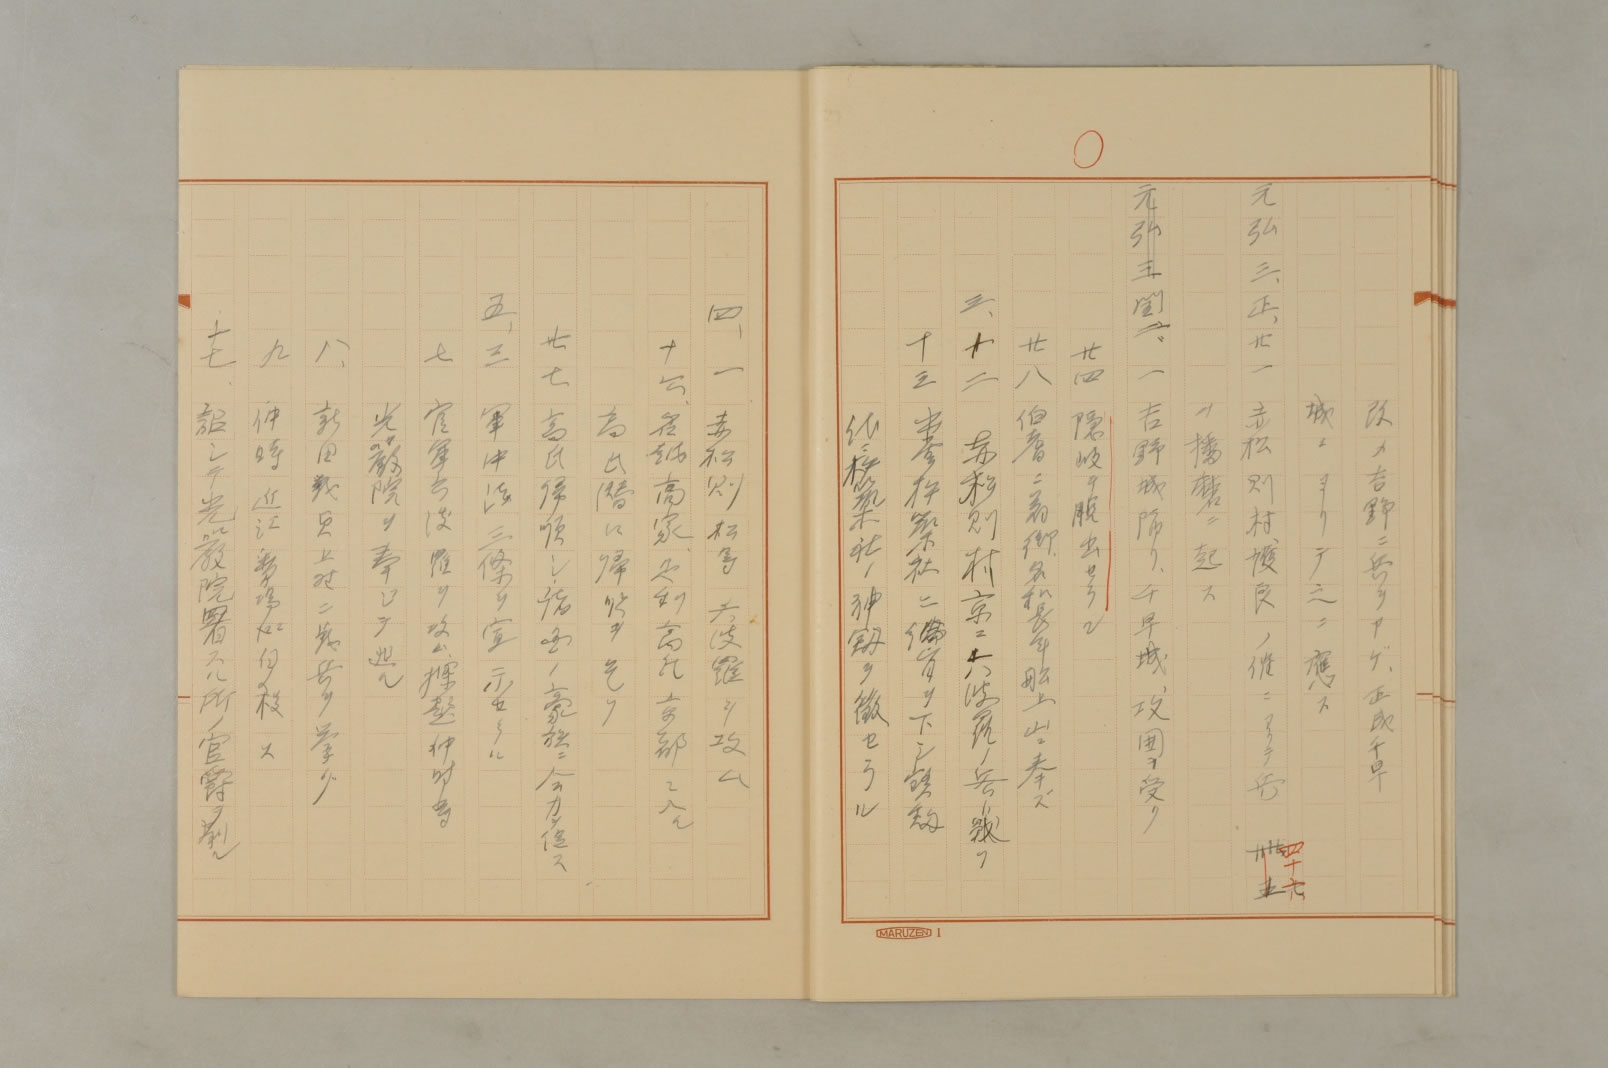 改メ吉野ニ兵ヲアゲ、正成千早
城ニヨリテ之ニ應ス
元弘三、正、廿一 赤松則村、護良ノ催ニヨリテ兵
ヲ播磨ニ起ス
四十六
元弘三、閏二、一 吉野城陥リ、千早城、攻囲ヲ受ク
廿四 隠岐ヲ脱出セラル
廿八 伯耆ニ着御、名和長年船上山ニ奉ズ
三、十二 赤松則村京ニ六波羅ノ兵ト戰フ
十三 出雲杵築社ニ綸旨ヲ下シ寶劔
代ニ杵築社ノ神劔ヲ徴セラル
MARUZEN 1
四、一 赤松則村等六波羅ヲ攻ム
十六、名越高家、足利高氏京都ニ入ル
高氏潜ニ帰順ヲ乞フ
廿七 高氏帰順シ諸国ノ豪族ニ合力ヲ催ス
五、三 軍中法三條ヲ宣示セラル
七 官軍六波羅ヲ攻ム、探題仲時等
光嚴院ヲ奉ジテ迯ル
八、新田義貞上野ニ義兵ヲ挙ク
九 仲時近江番場ニ自殺ス
十七、詔シテ光嚴院署スル所ノ官爵ヲ削ル